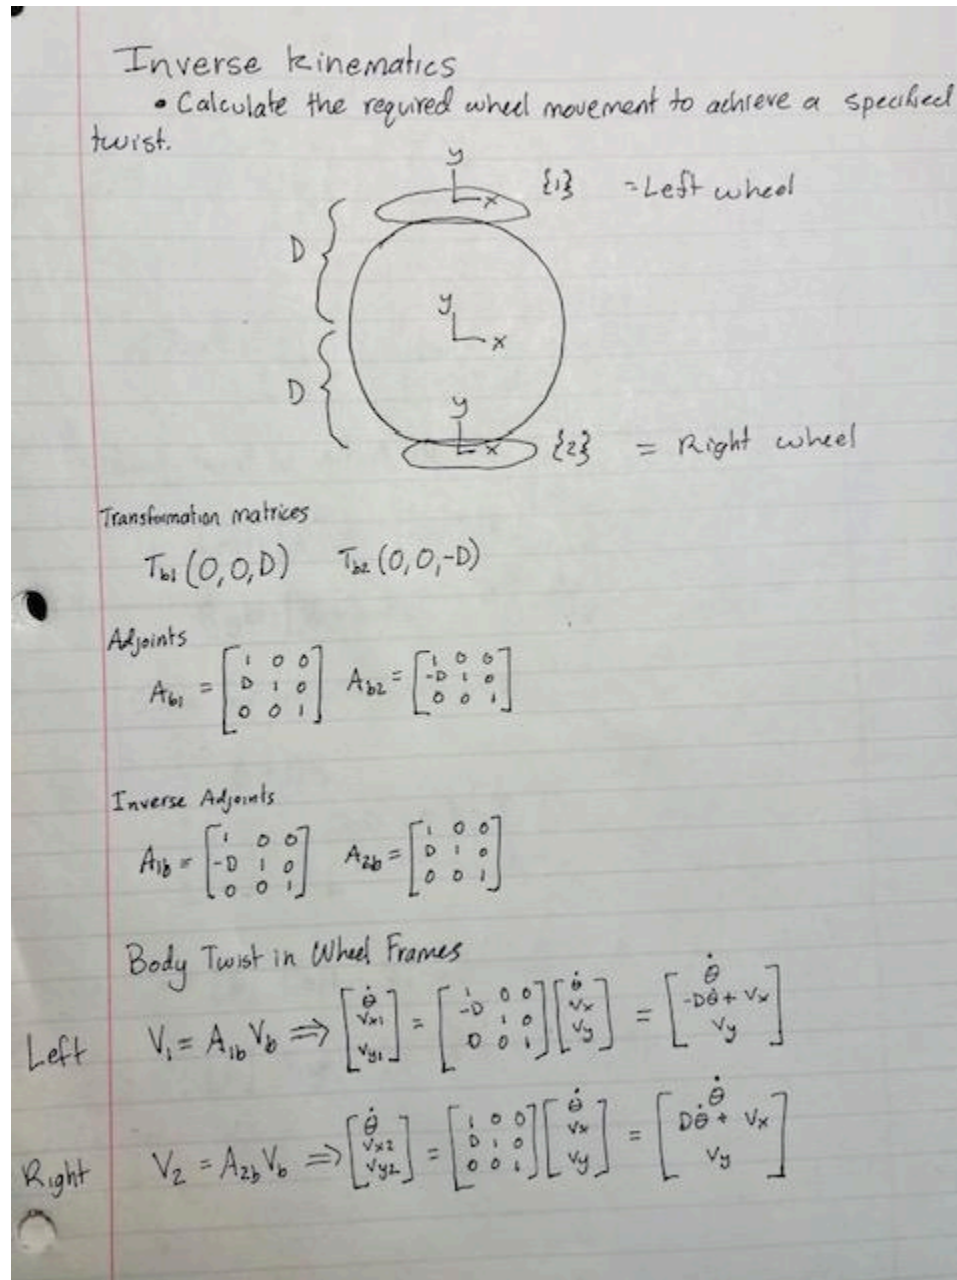 Inverse Kinematics
• Calculate the required wheel movement to achieve a specified
twist.
y
x
{1} = Left wheel
D
y
x
D
y
x
{2} = Right wheel
Transformation matrices
T_b1 (0,0,D) T_b2 (0,0,-D)
Adjoints
A_b1 = [1 0 0; D 1 0; 0 0 1] A_b2 = [1 0 0; -D 1 0; 0 0 1]
Inverse Adjoints
A_1b = [1 0 0; -D 1 0; 0 0 1] A_2b = [1 0 0; D 1 0; 0 0 1]
Body Twist in Wheel Frames
Left V_1 = A_1b V_b ⇒ [θ̇; Vx1; Vy1] = [1 0 0; -D 1 0; 0 0 1] [θ̇; Vx; Vy] = [θ̇; -Dθ̇ + Vx; Vy]
Right V_2 = A_2b V_b ⇒ [θ̇; Vx2; Vy2] = [1 0 0; D 1 0; 0 0 1] [θ̇; Vx; Vy] = [θ̇; Dθ̇ + Vx; Vy]